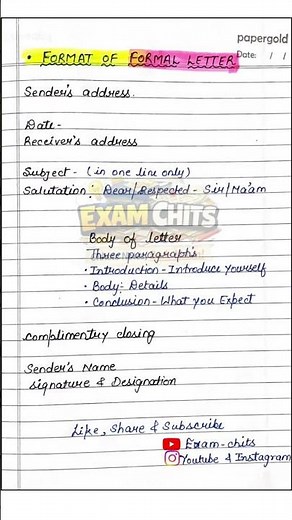 papergold
Date: / /
• FORMAT OF FORMAL LETTER
Sender's address.
Date-
Receiver's address
Subject - (in one line only)
Salutation : Dear/Respected - Sir/Ma'am
EXAM CHITS
Body of Letter
Three paragraph's
• Introduction - Introduce Yourself
• Body: Details
• Conclusion - What You Expect
Complimentry closing
Sender's Name
Signature & Designation
Like, Share & Subscribe
Exam-chits
Youtube & Instagram